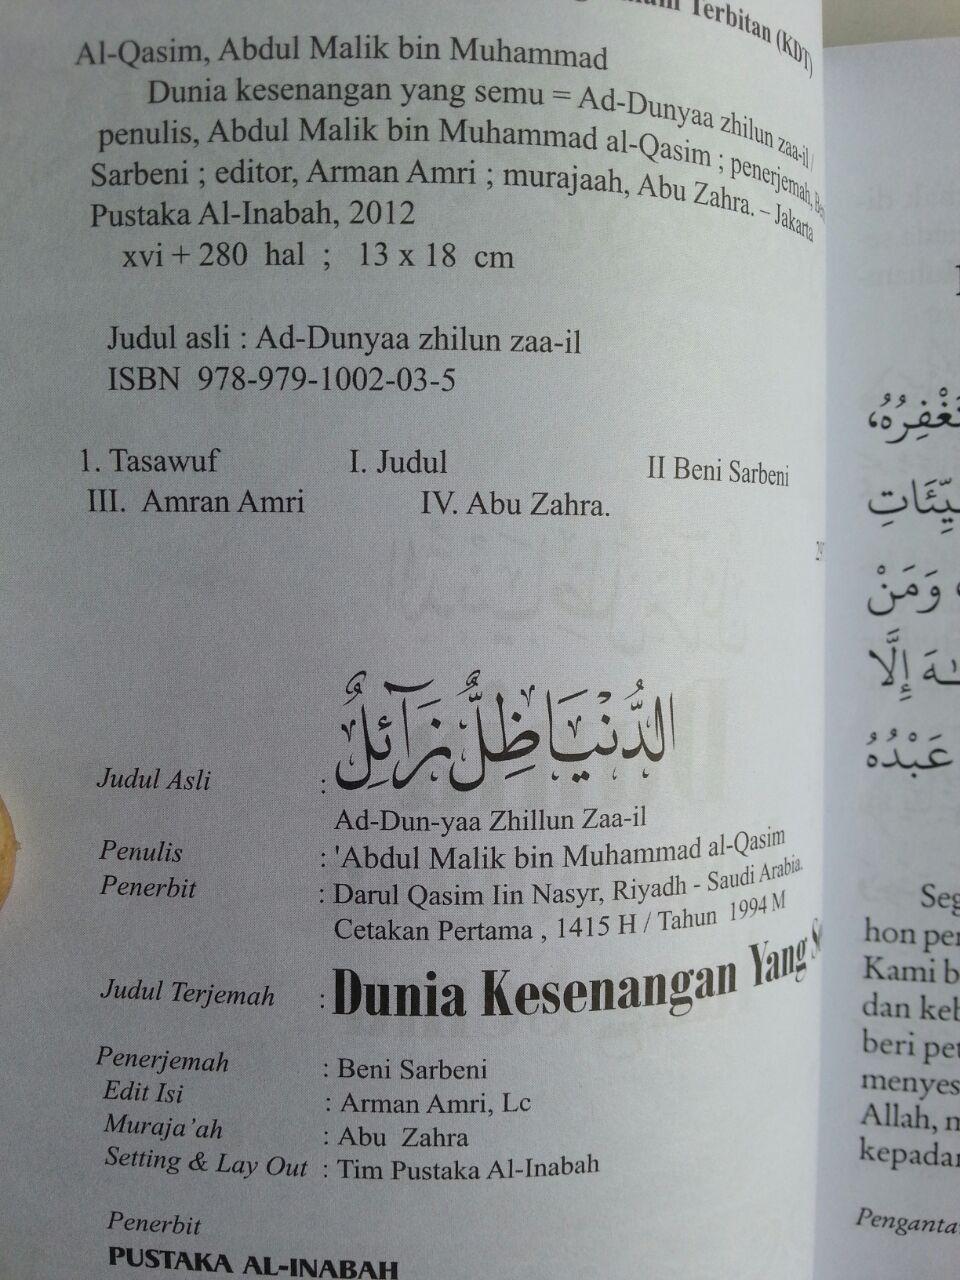 Terbitan (KDT)
Al-Qasim, Abdul Malik bin Muhammad
Dunia kesenangan yang semu = Ad-Dunyaa zhilun zaa-il /
penulis, Abdul Malik bin Muhammad al-Qasim ; penerjemah,
Sarbeni ; editor, Arman Amri ; murajaah, Abu Zahra. – Jakarta
Pustaka Al-Inabah, 2012
xvi + 280 hal ; 13 x 18 cm
Judul asli : Ad-Dunyaa zhilun zaa-il
ISBN 978-979-1002-03-5
1. Tasawuf I. Judul II Beni Sarbeni
III. Amran Amri IV. Abu Zahra.
Judul Asli : الدُّنْيَا ظِلٌّ زَآئِلٌ
Ad-Dun-yaa Zhillun Zaa-il
Penulis : 'Abdul Malik bin Muhammad al-Qasim
Penerbit : Darul Qasim Iin Nasyr, Riyadh - Saudi Arabia.
Cetakan Pertama , 1415 H / Tahun 1994 M
Judul Terjemah : Dunia Kesenangan Yang
Penerjemah : Beni Sarbeni
Edit Isi : Arman Amri, Lc
Muraja'ah : Abu Zahra
Setting & Lay Out : Tim Pustaka Al-Inabah
Penerbit
PUSTAKA AL-INABAH
وَمَنْ
إِلَّا
عَبْدُهُ
Seg
hon per
Kami b
dan keb
beri pet
menyes
Allah, m
kepadan
Penganta